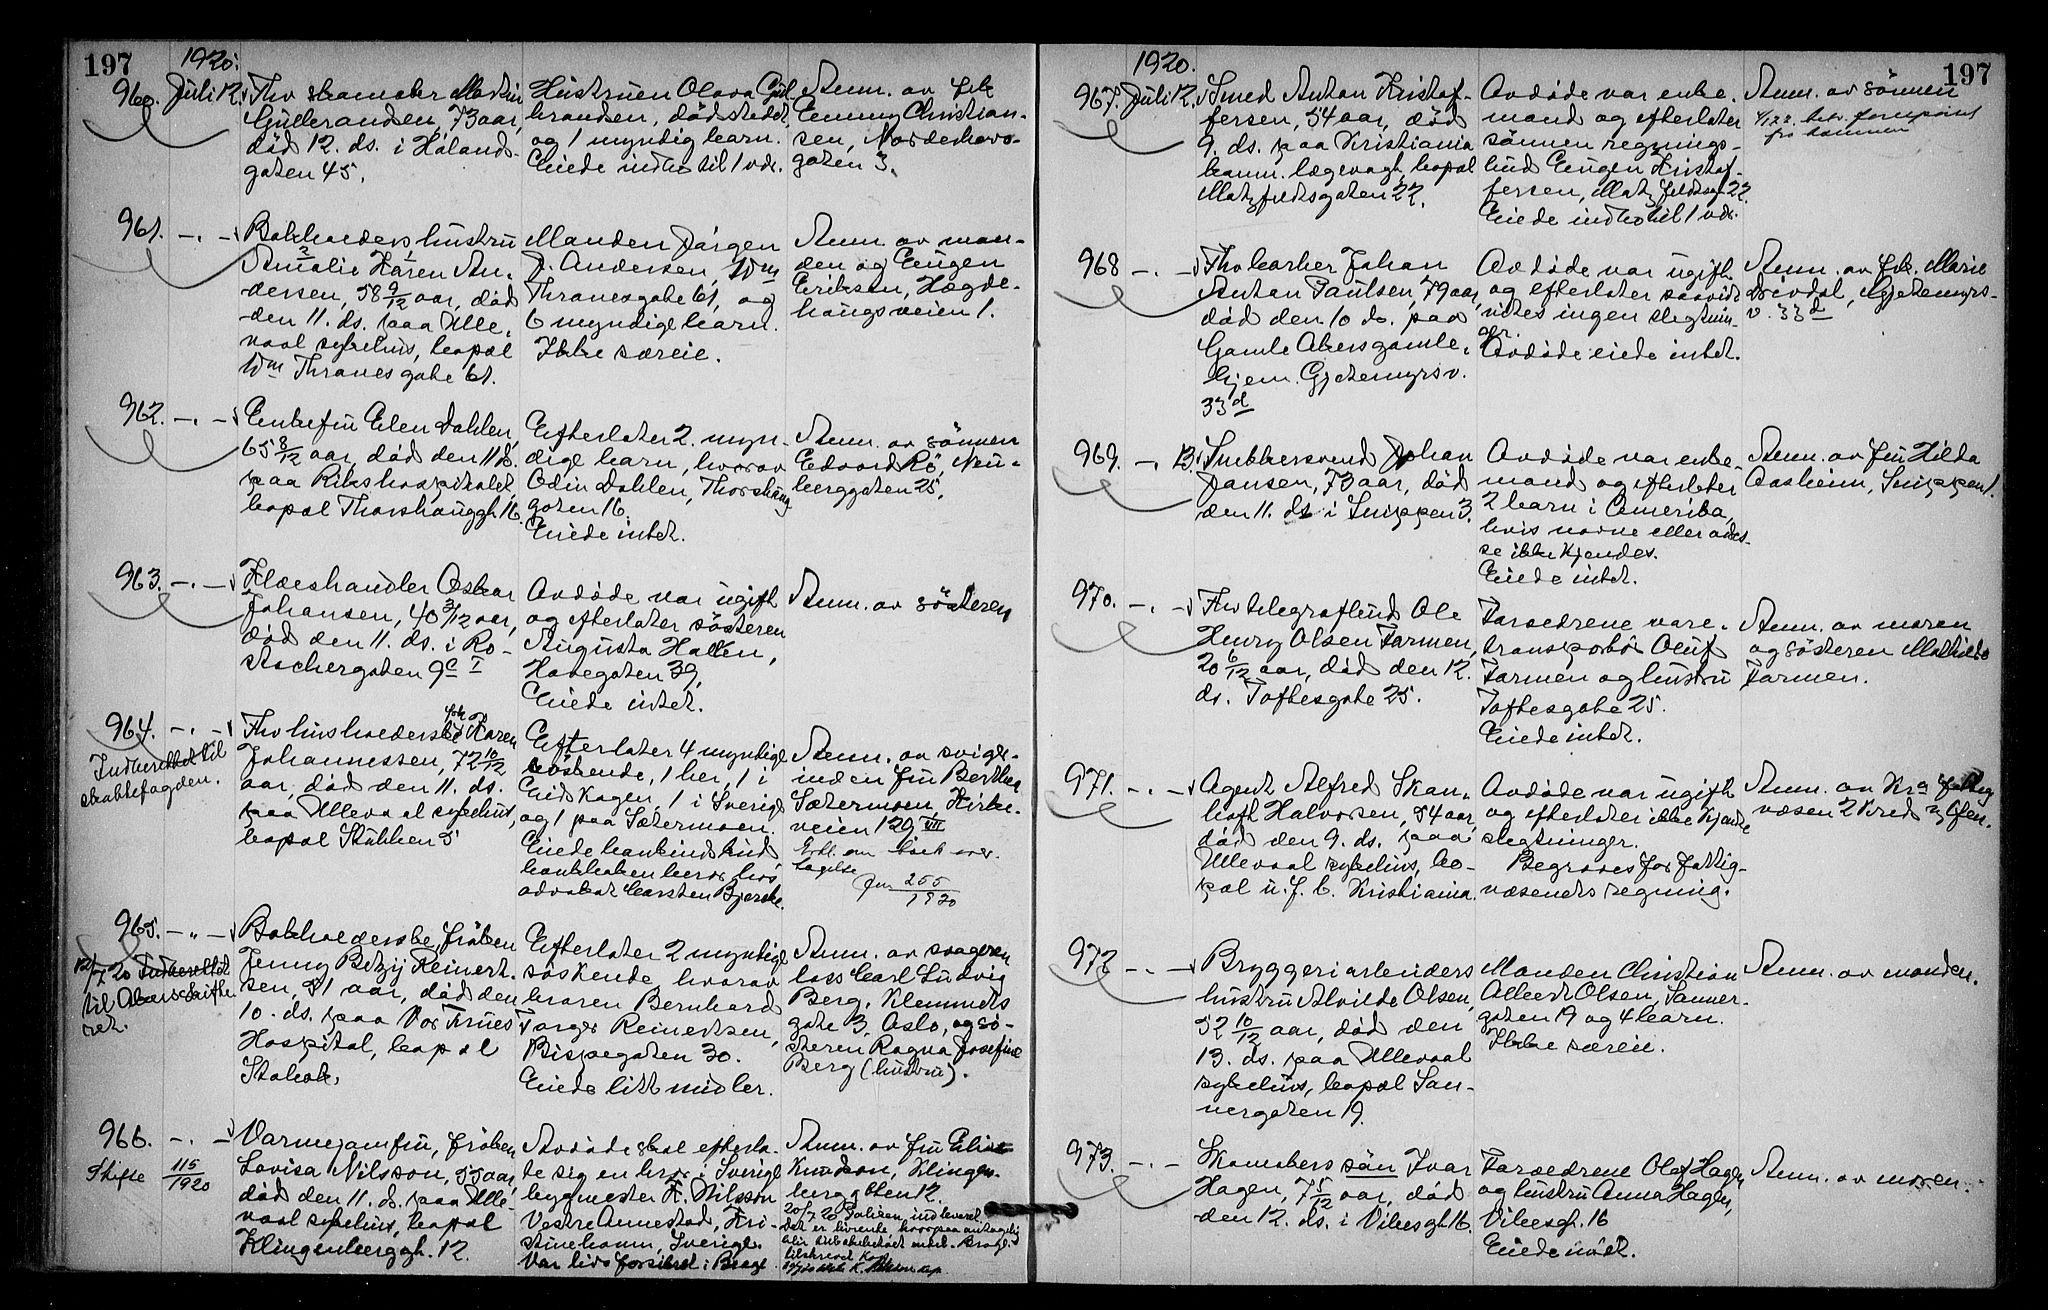 197
1920.
960. Juli 12. Fhv skomaker Martin
Gulbrandsen, 73 aar,
død 12. ds. i Hølands-
gaten 45.
Hustruen Olava Gul
brandsen, død stedet,
og 1 myndig barn.
Eiede indbo til 1 vdr.
Anm. av frk
Emmy Christian-
sen, Nordehovs-
gaten 3.
961. -.- Bokholders hustru
Amalie Karen An-
dersen, 58 9/12 aar, død
den 11. ds. paa Ulle-
vaal sykehus, bopæl
Wm Thranesgate 61.
Manden Jørgen
J. Andersen, Wm
Thranesgate 61, og
6 myndige barn.
Ikke særeie.
Anm. av man-
den og Eugen
Eriksen, Hægde-
haugsveien 1.
962. -.- Enkefru Elen Dahlen,
65 8/12 aar, død den 11 ds.
paa Rikshospitalet,
bopæl Thorshauggt. 16.
Efterlater 2 myn-
dige barn, hvorav
Odin Dahlen, Thorshaug
gaten 16.
Eiede intet.
Anm. av sønnen
Edvard Rø, Neu-
berggaten 25.
963. -.- Flæskhandler Oskar
Johansen, 40 3/12 aar,
død den 11. ds. i Ro-
stschergaten 9c I
Avdøde var ugift
og efterlater søsteren
Augusta Hallén,
Havegaten 39,
Eiede intet.
Anm. av søsteren
964. -.-
Indberettet til
skattefogden.
Fhv husholderske frk Karen
Johannessen, 72 10/12
aar, død den 11. ds.
paa Ullevaal sykehus,
bopæl Stubben 5
Efterlater 4 myndige
søskende, 1 her, 1 i
Eidskogen, 1 i Sverige
og 1 paa Sætermoen.
Eiede bankindskud
bankboken beror hos
advokat Carsten Bjerke.
Anm. av sviger-
inden fru Berthea
Sætermoen, Kirke-
veien 129 VII
Erkl. om boets over
tagelse
Jnr 255/1920
965. -"-
12/7 20 Indberettet
til Aker skifte
ret.
Bokholderske, frøken
Jenny Betzy Reinert-
sen, 51 aar, død den
10. ds. paa Vor Frues
Hospital, bopæl
Stabæk.
Efterlater 2 myndige
søskende, hvorav
broren Bernhard
Torger Reinertsen,
Bispegaten 30.
Eiede litt midler.
Anm. av svageren
loss Carl Ludvig
Berg, Klemmets
gate 3, Oslo, og sø-
steren Ragna Josefine
Berg (hustru).
966. -.-
Skifte 115/1920
Varmejomfru, frøken
Lovisa Nilsson, 55 aar,
død den 11. ds. paa Ulle-
vaal sykehus, bopæl
Klingenberggt. 12.
Avdøde skal efterla-
te sig en bror i Sverige
bygmester K. Nilsson
Vestre Annestad, Kri-
stinehamn, Sverige.
Var livsforsikret i Brage
Anm. av fru Elise
Knudsen, Klingen-
berggaten 12.
20/7 20 Politien indleveret
197
1920.
967. Juli 12. Smed Anton Kristof-
fersen, 54 aar, død
9. ds. paa Kristiania
komm. lægevagt, bopæl
Matzfeldtsgaten 22.
Avdøde var enke-
mand og efterlater
sønnen regnings-
bud Eugen Kristof-
fersen, Matzfeldtsgt. 22.
Eiede indbo til 1 vdr.
Anm. av sønnen
968 -.- Fhv barber Johan
Anton Paulsen, 79 aar,
død den 10 ds. paa
Gamle Akers gamle-
hjem. Gjetemyrsv.
33d
Avdøde var ugift
og efterlater saavidt
vites ingen slegtnin-
ger.
Avdøde eiede intet.
Anm. av frk. Marie
Drivdal, Gjetemyrs-
v. 33d
969. -. 13. Snekkersvend Johan
Jansen, 73 aar, død
den 11. ds i Snippen 3.
Avdøde var enke-
mand og efterlater
2 barn i Amerika,
hvis navne eller adres-
se ikke kjendes.
Eiede intet.
Anm. av fru Hilda
Aasheim, Snippen 1.
970. -.- Fhv telegrafbud Ole
Henry Olsen Farmen,
20 6/12 aar, død den 12.
ds. Toftesgate 25.
Forældrene vare-
transportør Oluf
Farmen og hustru
Toftesgate 25.
Eiede intet.
Anm. av moren
og søsteren Mathilde
Farmen.
971. -.- Agent Alfred Skan-
hoft Halvorsen, 54 aar,
død den 9. ds. paa
Ullevaal sykehus, bo-
pæl u.f.b. Kristiania.
Avdøde var ugift
og efterlater ikke kjendte
slegtninger.
Begraves for fattig-
væsenets regning.
Anm. av Kra fattig
væsen 2 Kred
972 -.- Bryggeriarbeiders
hustru Alvilde Olsen,
52 10/12 aar, død den
13. ds. paa Ullevaal
sykehus, bopæl San-
nergaten 19.
Manden Christian
Albert Olsen, Sanner-
gaten 19 og 4 barn.
Ikke særeie.
Anm. av manden.
973. -.- Skomakers søn Ivar
Hagen, 7 5/12 aar, død
den 12. ds. i Vibesgt. 16.
Forældrene Olaf Hagen
og hustru Anna Hagen,
Vibesgt. 16
Eiede intet.
Anm. av moren.